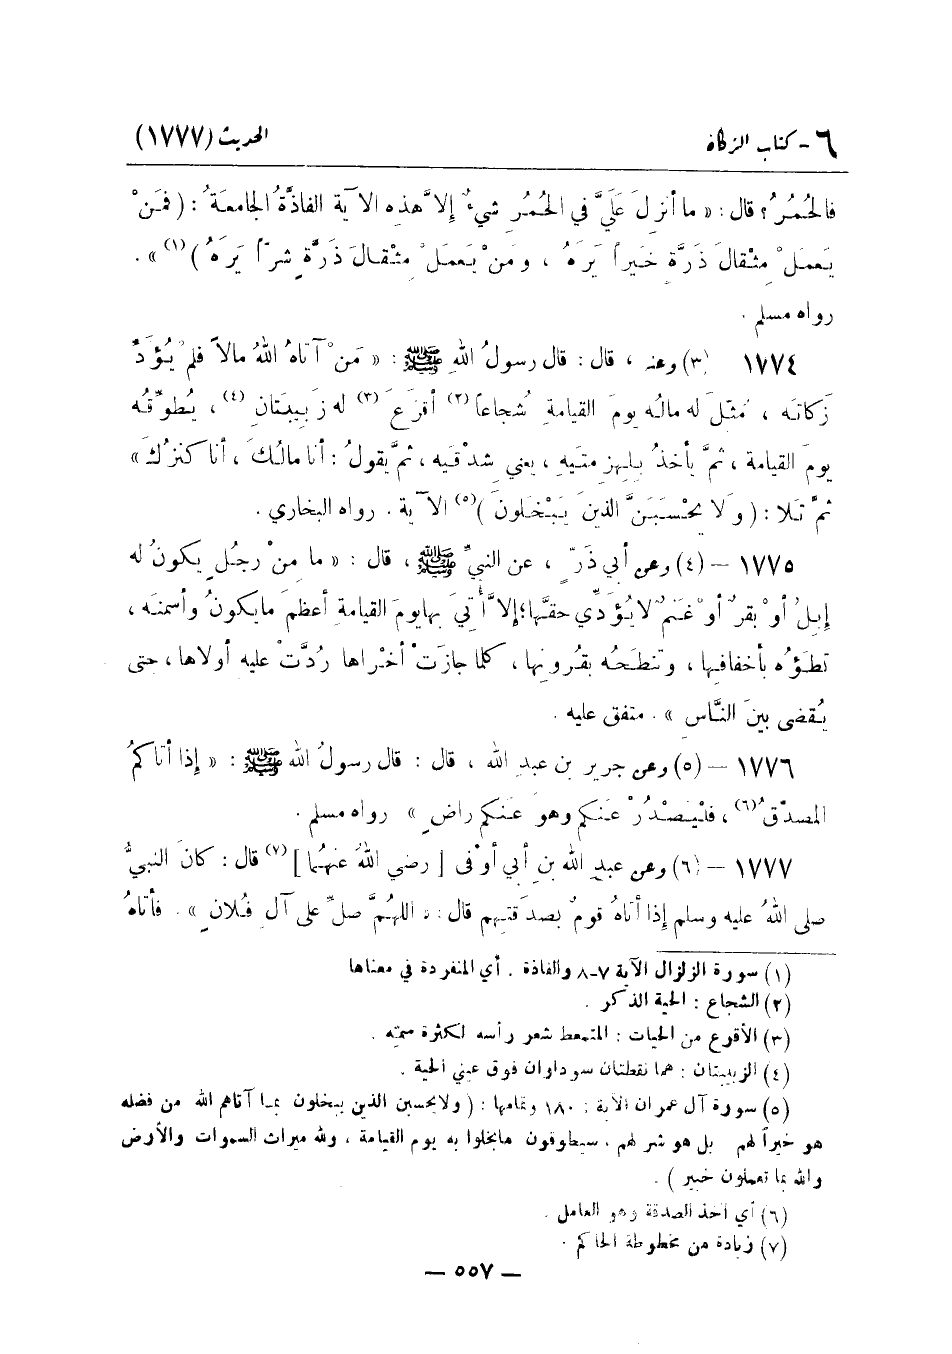 ٦ - كتاب الزكاة الحديث (١٧٧٧)
فالحُمُرُ؟ قال: « ما أنزِلَ عَلَيَّ في الحُمُرِ شيءٌ إلاَّ هذه الآيةَ الفاذَّةُ الجامعةُ: ( فمَنْ
يَعمَلْ مِثْقالَ ذَرَّةٍ خَيراً يَرَهُ ، ومَنْ يَعمَلْ مِثْقالَ ذَرَّةٍ شرّاً يَرَهُ )(١) » .
رواه مسلم .
١٧٧٤ (٣) وعنه ، قال: قال رسولُ اللهِ ﷺ : « مَنْ آتاهُ اللهُ مالاً فلمْ يُؤَدِّ
زَكاتَه ، مُثِّلَ له مالُه يومَ القيامةِ شُجاعاً(٢) أقرَعَ(٣) له زَبيبَتانِ(٤) ، يُطوَّقُه
يومَ القيامة ، ثمَّ يأخذُ بلِهزِمتَيهِ ، يعني شِدْقَيه ، ثمَّ يقولُ: أنا مالُكَ ، أنا كنزُكَ »
ثمَّ تَلا: ( ولا يحْسَبَنَّ الذينَ يَبْخَلونَ )(٥) الآية . رواه البخاري .
١٧٧٥ – (٤) وعن أبي ذَرّ ٍ ، عن النبيِّ ﷺ ، قال : « ما مِنْ رجُلٍ يكونُ له
إبِلٌ أوْ بقرٌ أوْ غَنمٌ لا يُؤدِّي حقَّها؛ إلاَّ أُتيَ بها يومَ القيامة أعظمَ ما يكونُ وأسمنَه ،
تطَؤُه بأخفافِها ، وتنطَحُه بقُرونها ، كلما جازَتْ أخْراها رُدَّتْ عليه أولاها ، حتى
يُقضى بينَ النَّاسِ » . متفق عليه .
١٧٧٦ – (٥) وعن جرير بن عبدِ الله ، قال : قال رسولُ الله ﷺ : « إذا أتاكمُ
المصدِّقُ(٦) ، فلْيَصْدُرْ عَنكم وهوَ عَنكم راضٍ » رواه مسلم .
١٧٧٧ – (٦) وعن عبدِ الله بنِ أبي أوْفى [ رضي اللهُ عنهُما ](٧) قال : كانَ النبيُّ
صلى اللهُ عليه وسلم إذا أتاهُ قومٌ بصدَقتِهم قال: « اللهُمَّ صلِّ على آلِ فُلانٍ » . فأتاهُ
(١) سورة الزلزال الآية ٧-٨ والفاذة . أي المنفردة في معناها
(٢) الشجاع : الحية الذكر .
(٣) الأقرع من الحيات : المتمعط شعر رأسه لكثرة سمّه .
(٤) الزبيبتان : هما نقطتان سوداوان فوق عيني الحية .
(٥) سورة آل عمران الآية : ١٨٠ وتمامها : ( ولا يحسبن الذين يبخلون بما آتاهم الله من فضله
هو خيراً لهم بل هو شر لهم ، سيطوقون ما بخلوا به يوم القيامة ، ولله ميراث السموات والأرض
والله بما تعملون خبير ) .
(٦) أي آخذ الصدقة وهو العامل .
(٧) زيادة من مخطوطة الحاكم .
– ٥٥٧ –